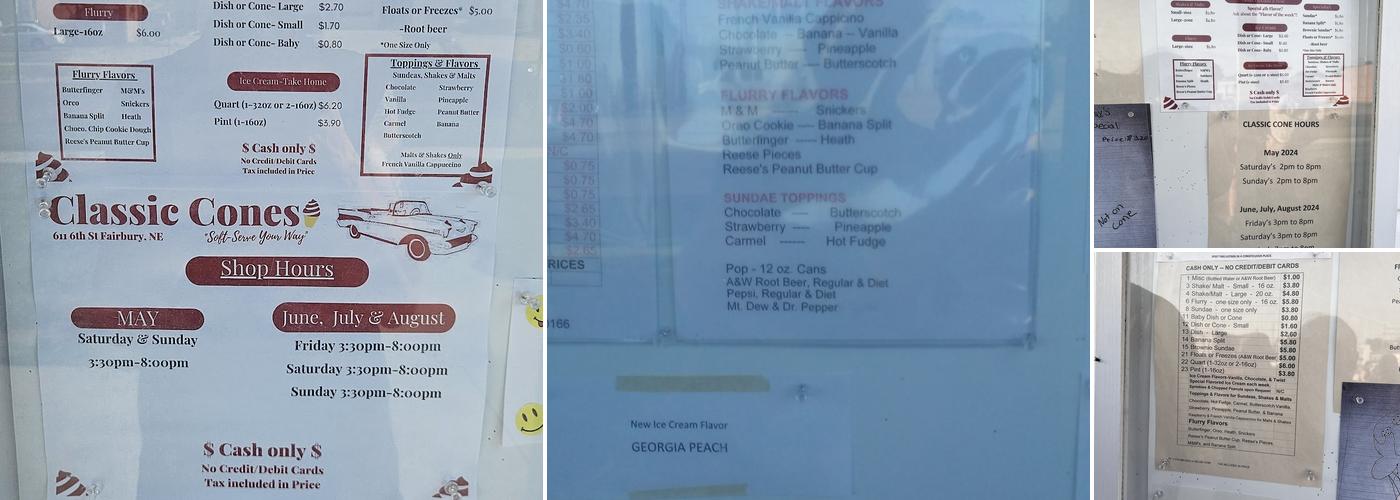 Flurry
Large-16oz $6.00
Dish or Cone- Large $2.70
Dish or Cone- Small $1.70
Dish or Cone- Baby $0.80
Floats or Freezes* $5.00
-Root beer
*One Size Only
Flurry Flavors
Butterfinger M&M's
Oreo Snickers
Banana Split Heath
Choco. Chip Cookie Dough
Reese's Peanut Butter Cup
Ice Cream-Take Home
Quart (1-32oz or 2-16oz) $6.20
Pint (1-16oz) $3.90
$ Cash only $
No Credit/Debit Cards
Tax included in Price
Toppings & Flavors
Sundaes, Shakes & Malts
Chocolate Strawberry
Vanilla Pineapple
Hot Fudge Peanut Butter
Carmel Banana
Butterscotch
Malts & Shakes Only
French Vanilla Cappuccino
Classic Cones
611 6th St Fairbury. NE "Soft-Serve Your Way"
Shop Hours
MAY
Saturday & Sunday
3:30pm-8:00pm
June, July & August
Friday 3:30pm-8:00pm
Saturday 3:30pm-8:00pm
Sunday 3:30pm-8:00pm
$ Cash only $
No Credit/Debit Cards
Tax included in Price
SHAKE/MALT FLAVORS
French Vanilla Cappicino
Chocolate -- Banana -- Vanilla
Strawberry -- Pineapple
Peanut Butter -- Butterscotch
FLURRY FLAVORS
M & M ---- Snickers
Oreo Cookie ---- Banana Split
Butterfinger ---- Heath
Reese Pieces
Reese's Peanut Butter Cup
SUNDAE TOPPINGS
Chocolate ---- Butterscotch
Strawberry ---- Pineapple
Carmel ------ Hot Fudge
Pop - 12 oz. Cans
A&W Root Beer, Regular & Diet
Pepsi, Regular & Diet
Mt. Dew & Dr. Pepper
$4.70
N/C
$0.75
$0.75
$0.75
$2.65
$3.40
$4.70
RICES
0166
New Ice Cream Flavor
GEORGIA PEACH
Flurry Flavors
Toppings & Flavors
$ Cash only $
No Credit/Debit Cards
Tax included in Price
CLASSIC CONE HOURS
May 2024
Saturday's 2pm to 8pm
Sunday's 2pm to 8pm
June, July, August 2024
Friday's 3pm to 8pm
Saturday's 3pm to 8pm
Not on
Cone
CASH ONLY -- NO CREDIT/DEBIT CARDS
1 Misc (Bottled Water or A&W Root Beer) $1.00
3 Shake/ Malt - Small - 16 oz. $3.80
4 Shake/Malt - Large - 20 oz. $4.80
6 Flurry - one size only - 16 oz. $5.80
8 Sundae - one size only $3.80
11 Baby Dish or Cone $0.80
12 Dish or Cone - Small $1.60
13 Dish - Large $2.60
14 Banana Split $5.80
15 Brownie Sundae $5.80
21 Floats or Freezes (A&W Root Beer) $5.00
22 Quart (1-32oz or 2-16oz) $6.00
23 Pint (1-16oz) $3.80
Ice Cream Flavors-Vanilla, Chocolate, & Twist
Special Flavored Ice Cream each week.
Sprinkles & Chopped Peanuts upon Request N/C
Toppings & Flavors for Sundaes, Shakes & Malts
Chocolate, Hot Fudge, Carmel, Butterscotch Vanilla,
Strawberry, Pineapple, Peanut Butter, & Banana
Raspberry & French Vanilla Cappuccino for Malts & Shakes
Flurry Flavors
Butterfinger, Oreo, Heath, Snickers
Reese's Peanut Butter Cup, Reese's Pieces,
M&M's, and Banana Split